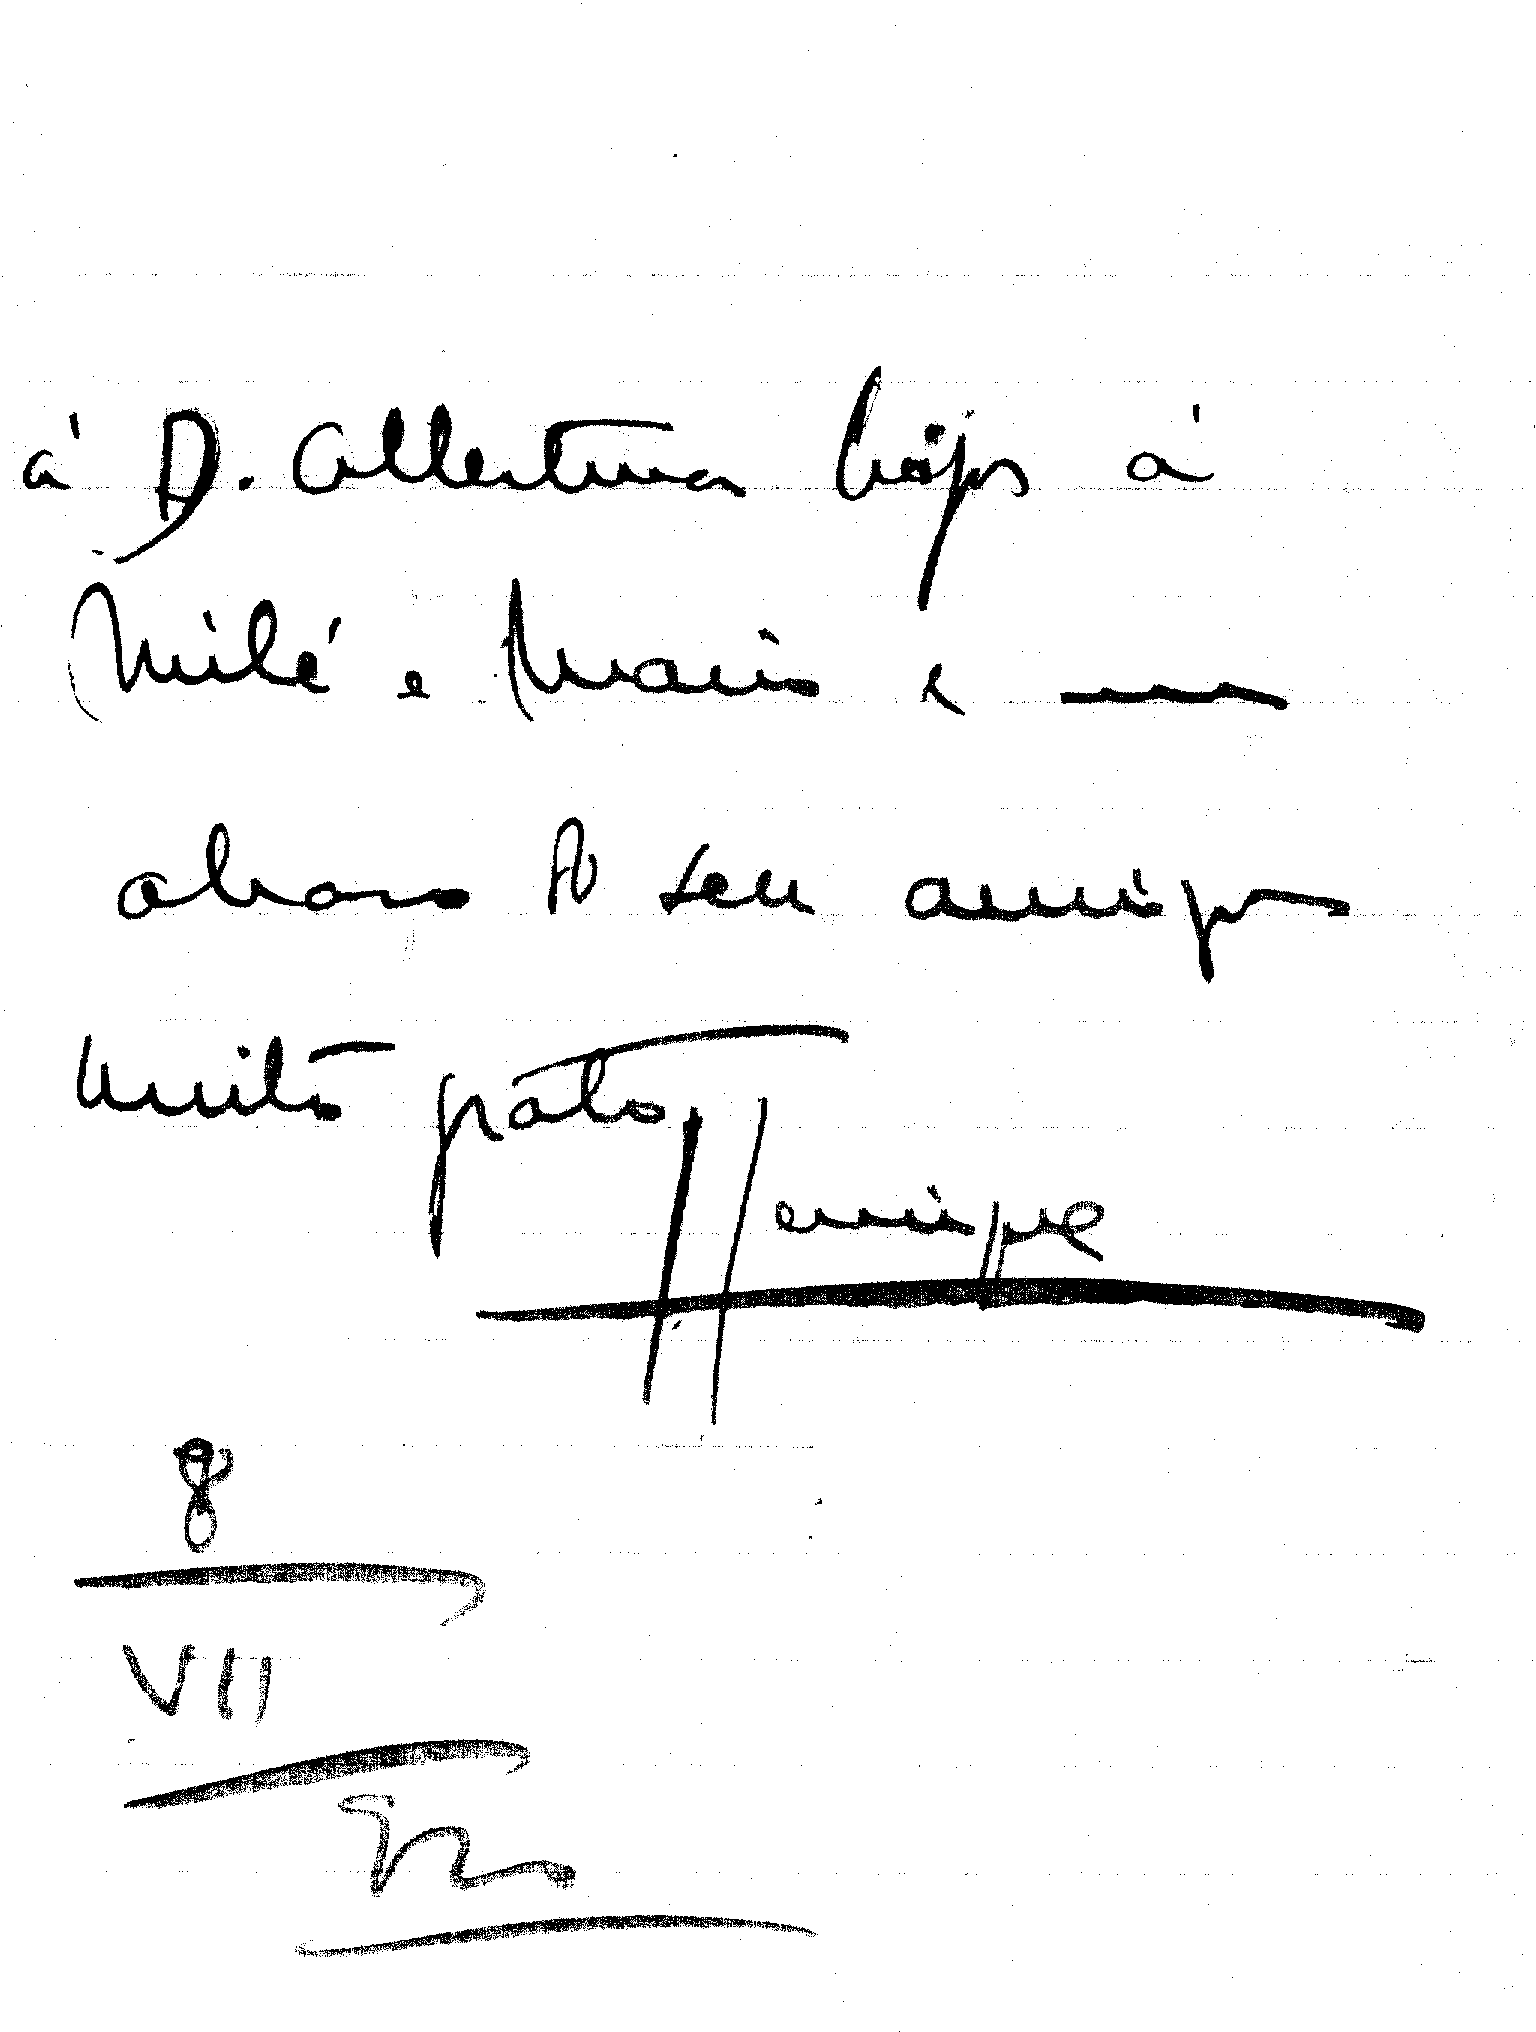 à D. Albertina beijos à
Milé e Mário e um
abraço do seu amigo
muito grato
Henrique
8
VII